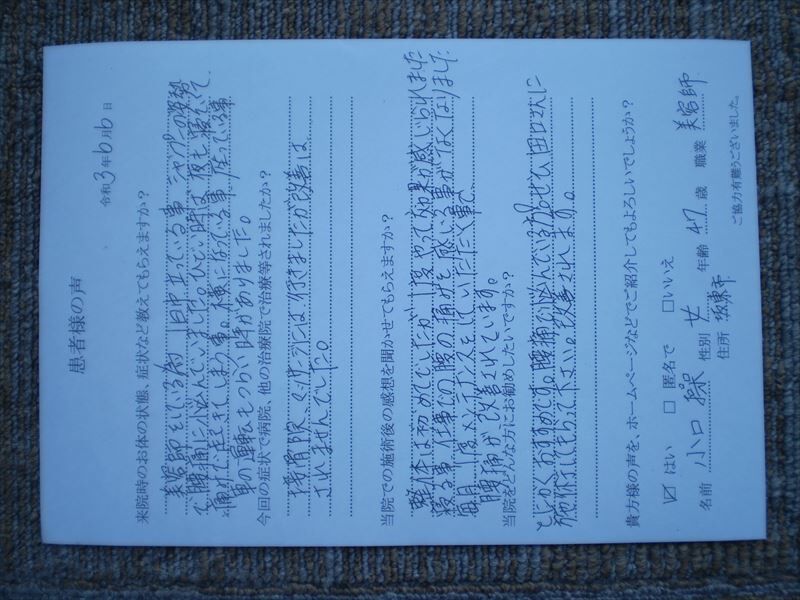 患者様の声
令和3年6月6日
来院時のお体の状態、症状など教えてもらえますか？
美容師をしている為、1日中立っている事、シャンプーの姿勢
で腰痛に悩んでいました。ひどい時は夜も寝ていて
痛みで起きてしまう事。横になっている事、座っている事
車の運転もつらい時がありました。
今回の症状で病院、他の治療院で治療等されましたか？
接骨院、マッサージには行きましたが改善は
されませんでした。
当院での施術後の感想を聞かせてもらえますか？
整体は初めてでしたが、1度やって効果が感じられました
寝る事、仕事での腰の痛みを感じる事がなくなりました
毎月1度メンテナンスをしていただく事で
腰痛が改善されています。
当院をどんな方にお勧めしたいですか？
とにかくおすすめです。腰痛で悩んでいる方ぜひ田口さんに
施術してもらって下さい。改善されます。
貴方様の声を、ホームページなどでご紹介してもよろしいでしょうか？
☑ はい □ 匿名で □いいえ
名前 小口 操 性別 女 年齢 47 歳 職業 美容師
住所 坂東市
ご協力有難うございました。